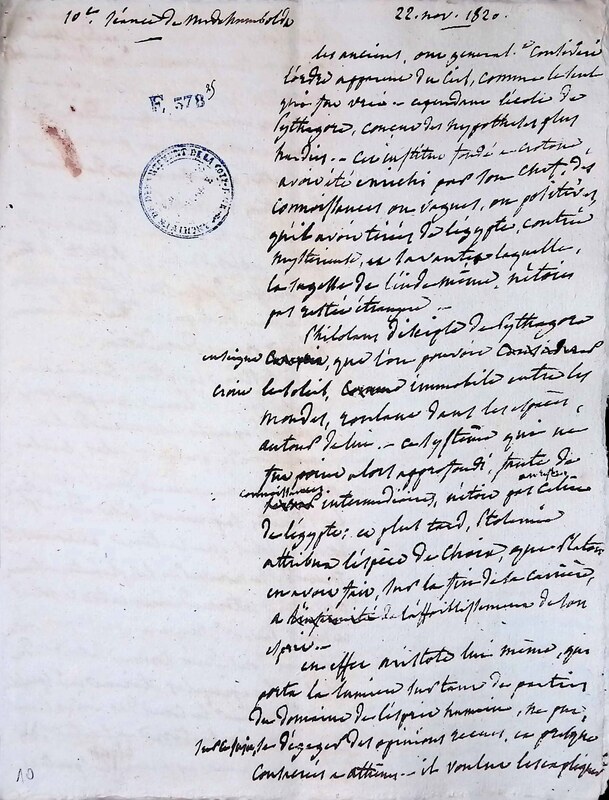 10e. séance de mr de humboldt
22. nov. 1820.
F, 378 25
ARCHIVES DU DÉPARTEMENT DE LA
les anciens, ont general.t considéré
l'ordre apparent du Ciel, comme le seul
qui fut vrai – cependant l'école de
Pythagore, conçut des hypothèses plus
hardies. – cet institut fondé a Crotone,
avoit été enrichi par son chef, des
connoissances ou vagues, ou positives,
qu'il avoit tirées de l'égypte, contrée
mystérieuse, et savante, a laquelle,
la sagesse de l'inde même, n'étoit
pas restée étrangère –
Philolaus disciple de Pythagore
enseigne, que l'on pouvoit
croire le soleil, immobile entre les
mondes, roulant dans les espaces,
autour de lui. – ce système qui ne
fut point alors approfondi, faute de
connoissances
intermédiaires, n'étoit pas celui
de l'égypte; et plus tard, Ptolemée
attribua l'espèce de choix, que Platon
en avoit fait, sur la fin de sa carrière,
a l'affoiblissement de son
esprit. –
en effet aristote lui même, qui
porta la lumière sur tant de parties
du domaine de l'esprit humain, ne put,
se dégager des opinions reçues, et presque
consacrées a athènes. – il voulut les expliquer
10